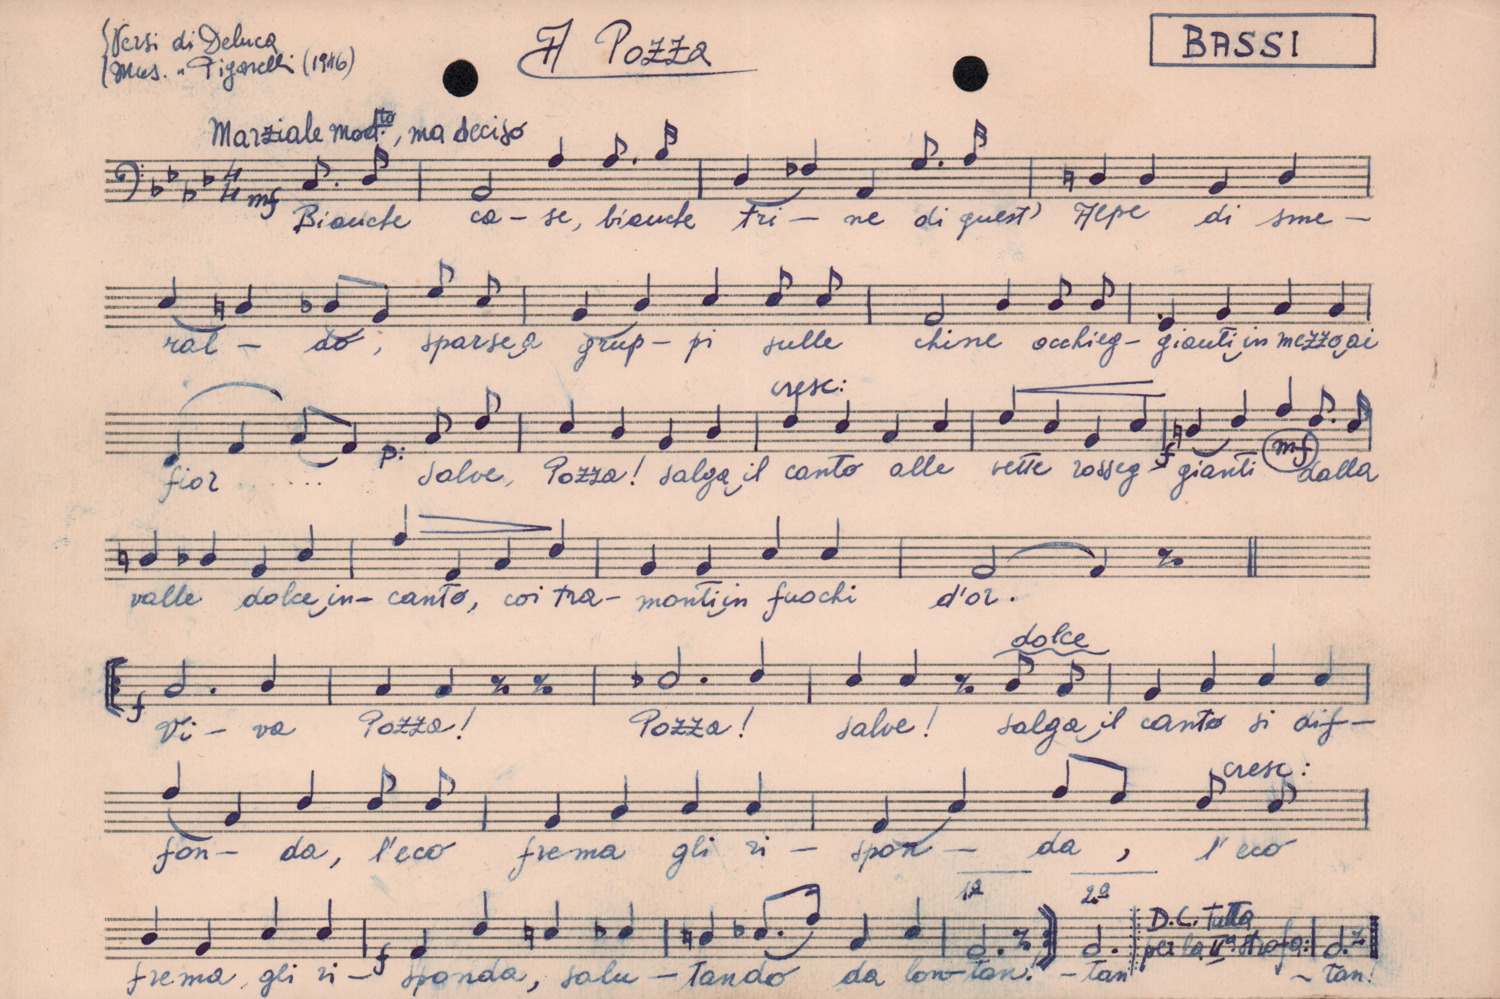 Versi di Deluca
Mus. " Pigarelli (1946)
A Pozza
BASSI
Marziale mod.to, ma deciso
4/4 mf
Bianche ca - se, bianche tri - ne di quest' Alpe di sme -
ral - do ; sparse a grup - pi sulle chine occhieg - gianti in mezzo ai
cresc:
p: f mf
fior ..... salve, Pozza! salga il canto alle vette rosseg - gianti dalla
valle dolce in - canto, coi tra - monti in fuochi d'or.
dolce
f
Vi - va Pozza! Pozza! salve! salga il canto si dif -
cresc:
fon - da, l'eco frema gli ri - spon - da , l'eco
1ª 2ª
D.C. Tutta
per la IIª strofa:
f
frema gli ri - sponda, salu - tando da lon - tan. - tan - tan!